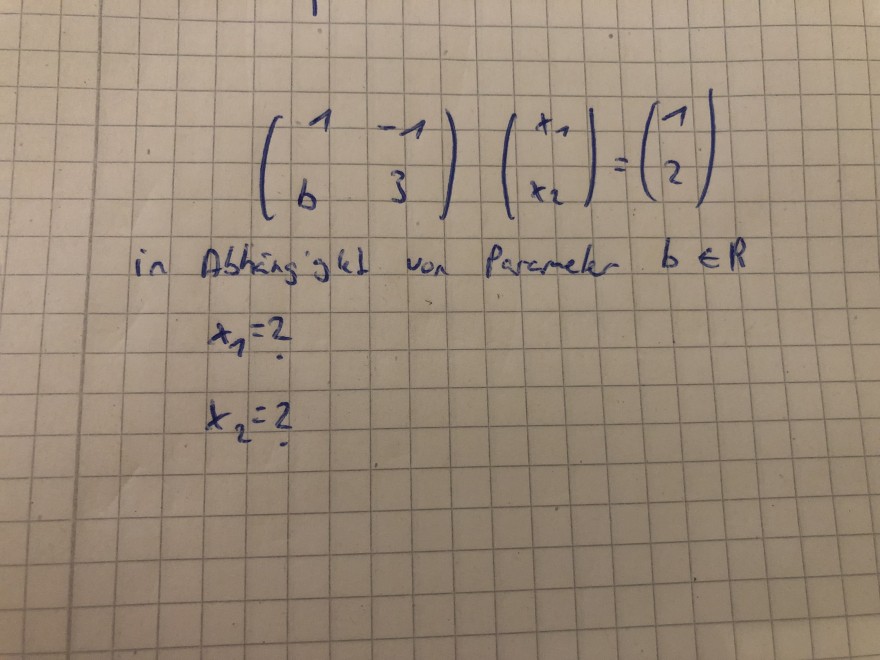 ( 1 -1 ) ( x₁ ) = ( 1 )
( b 3 ) ( x₂ ) ( 2 )
in Abhängigkt von Parameter b ∈ R
x₁ = ?
x₂ = ?